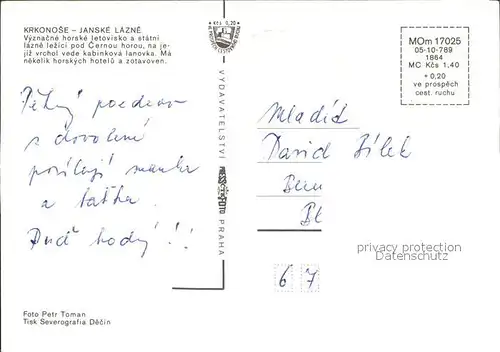 KRKONOŠE – JANSKÉ LÁZNĚ
Význačné horské letovisko a státní
lázně ležící pod Černou horou, na je-
jíž vrchol vede kabinková lanovka. Má
několik horských hotelů a zotavoven.
Kčs 0,20
MOm 17025
05-10-789
1864
MC Kčs 1,40
+ 0,20
ve prospěch
cest. ruchu
VYDAVATELSTVÍ
PRESSFOTO
PRAHA
Pěkný pozdrav
z dovolené
posílají mamka
a taťka.
Buď hodný!!
Mladíč
David Bílek
Brno
Bl
67
privacy protection
Datenschutz
Foto Petr Toman
Tisk Severografia Děčín